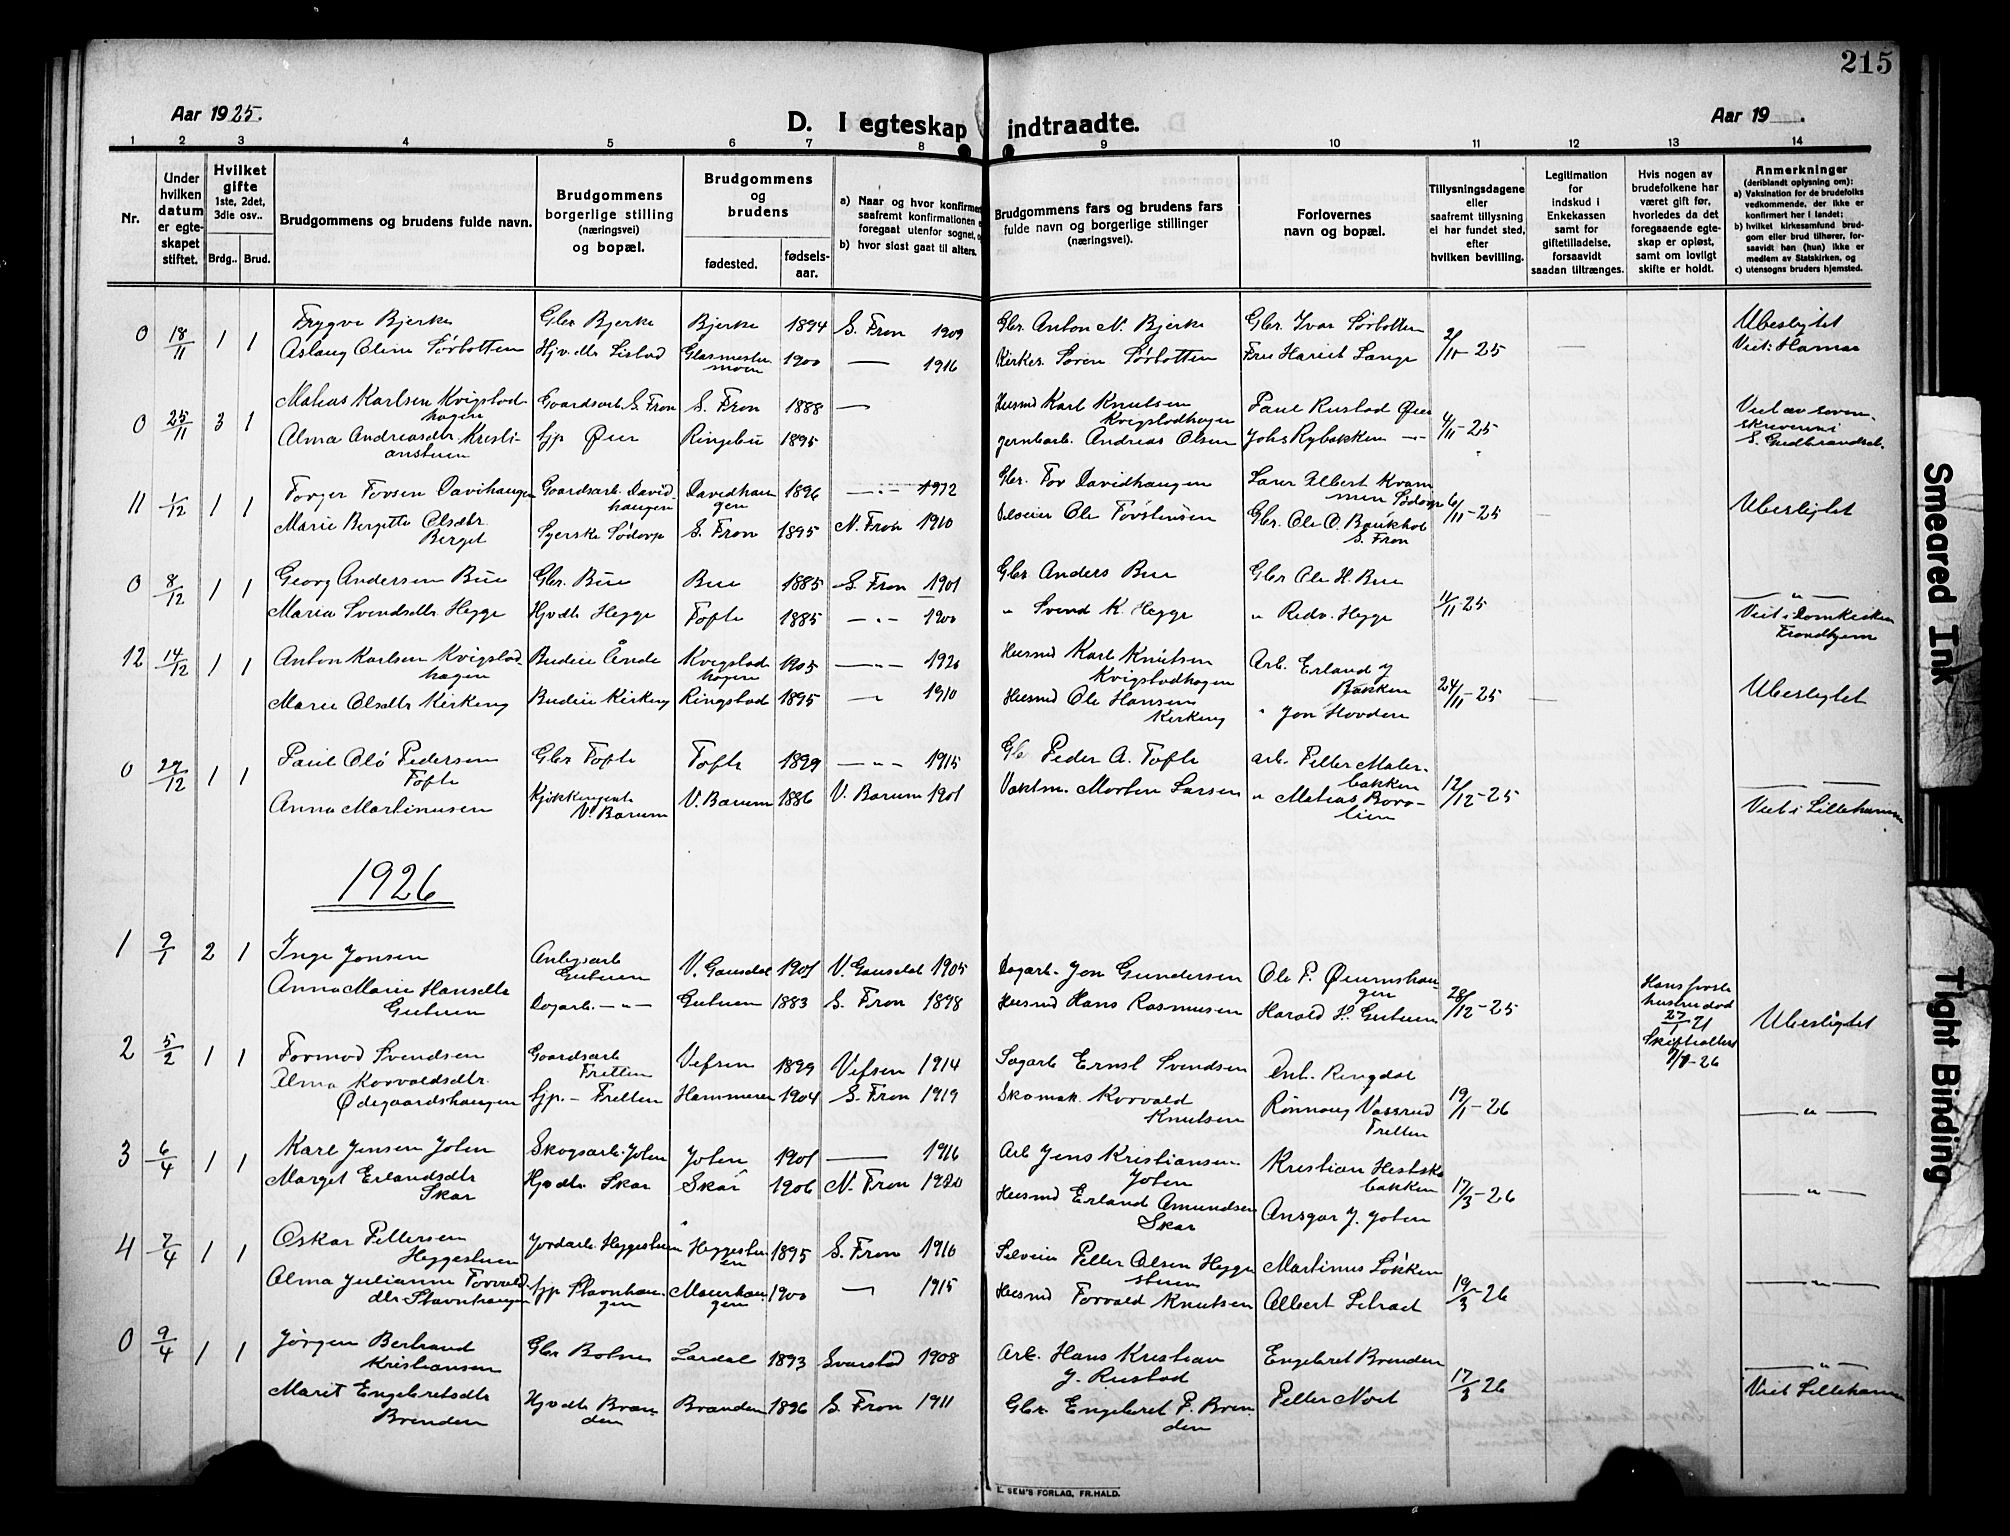 215
Aar 1925.
D. I egteskap indtraadte.
Aar 19
1 2 3 4 5 6 7 8 9 10 11 12 13 14
Nr.
Under hvilken datum er egteskapet stiftet.
Hvilket gifte 1ste, 2det, 3die osv..
Brdg.. Brud.
Brudgommens og brudens fulde navn.
Brudgommens borgerlige stilling (næringsvei) og bopæl.
Brudgommens og brudens
fødested. fødsels-aar.
a) Naar og hvor konfirmert saafremt konfirmationen foregaat utenfor sognet,
b) hvor sidst gaat til alters.
Brudgommens fars og brudens fars fulde navn og borgerlige stillinger (næringsvei).
Forlovernes navn og bopæl.
Tillysningsdagene eller saafremt tillysning ei har fundet sted, efter hvilken bevilling.
Legitimation for indskud i Enkekassen samt for giftetilladelse, forsaavidt saadan tiltrænges.
Hvis nogen av brudefolkene har været gift før, hvorledes da det foregaaende egteskap er opløst, samt om lovligt skifte er holdt.
Anmerkninger (deriblandt oplysning om):
a) Vaksination for de brudefolks vedkommende, der ikke er konfirmert her i landet;
b) hvilket kirkesamfund brudgom eller brud tilhører, forsaavidt han (hun) ikke er medlem av Statskirken, og
c) utensogns bruders hjemsted.
0 18/11 1 1 Trygve Bjerke Gbr Bjerke Bjerke 1894 S. Fron 1909 Gbr. Anton N. Bjerke Gbr. Ivar Sørbotten 2/11-25 — Ubeslegtet
Aslaug Oline Sørbotten Hjv.dtr Listad Glasmestermoen 1900 — 1916 Kirkes. Søren Sørbotten Fru Hariet Lange Viet: Hamar
0 25/11 3 1 Matias Karlsen Kvigstadhagen Gaardsarb. S. Fron S. Fron 1888 — Husmd Karl Knutsen Kvigstadhagen Paul Rustad Øier 4/11-25 Viet av sorenskriveren i S. Gudbrandsd.
Alma Andreasdtr. Kristianstuen Tjp Øier Ringebu 1895 Jernbarb. Andreas Olsen Johs Rybakken — " —
11 1/12 1 1 Torger Torsen Davihaugen Gaardsarb. Davidhaugen Davidhaugen 1896 — " — 1912 Gbr. Tor Davidhaugen Lærer Albert Kvammen Sødorp 6/11-25 — Ubeslegtet
Marie Bergitte Olsdtr Berget Syerske Sødorp S. Fron 1895 N. Fron 1910 Selveier Ole Torstensen Gbr. Ole O. Baukhol S. Fron
0 8/12 1 1 Georg Andersen Bue Gbr. Bue Bue 1885 S. Fron 1901 Gbr Anders Bue Gbr Ole H. Bue 11/11-25 — " —
Maria Svendsdtr Hegge Hjvdtr Hegge Tofte 1885 — " — 1900 " Svend K. Hegge " Redv. Hegge Viet i Domkirken Trondhjem
12 14/12 1 1 Anton Karlsen Kvigstadhagen Budeie Ånde Kvigstadhagen 1905 — " — 1920 Husmd Karl Knutsen Kvigstadhagen Arb. Erland J Bakken 24/11-25 — Ubeslegtet
Marie Olsdtr Kirkeng Budeie Kirkeng Ringstad 1895 — " 1910 Husmd Ole Hansen Kirkeng " Jon Hovden
0 29/12 1 1 Paul Olô Pedersen Tofte Gbr Tofte Tofte 1899 — " — 1915 Gbr Peder A. Tofte arb. Petter Malerbakken 12/12-25 —
Anna Martinusen Kjøkkenjente V. Bærum V. Bærum 1886 V. Bærum 1901 Vaktm. Morten Larsen " Matias Borolien Viet i Lillehammer
1926
1 9/1 2 1 Inge Jonsen Anlegsarb Gutuen V. Gausdal 1901 V. Gausdal 1905 Dagarb. Jon Gundersen Ole P. Øiumshaugen 28/12-25 Hans forste hustru død 27/1 21 Skifteattest 7/1-26 Ubeslegtet
Anna Marie Hansdtr Gutuen Dagarb. — " — Gutuen 1883 S. Fron 1898 Husmd Hans Rasmusen Harald H. Gutuen
2 5/2 1 1 Tormod Svendsen Gaardsarb Tretten Vefsen 1899 Vefsen 1914 Sagarb Ernst Svendsen Ant. Ringdal 19/1-26 — " —
Alma Korvaldsdtr. Ødegaardshaugen Tjp. — Tretten Hammeren 1904 S. Fron 1919 Skomak. Korvald Knutsen Rønnaug Vassrud Tretten
3 6/4 1 1 Karl Jensen Joten Skogsarb. Joten Joten 1901 — 1916 Arb Jens Kristiansen Joten Kristian Hestskobakken 17/3-26 — " —
Marget Erlandsdtr Skar Hjvdtr. Skar Skar 1906 N. Fron 1920 Husmd Erland Amundsen Skar Ansgar J. Joten
4 7/4 1 1 Oskar Pettersen Heggestuen Jordarb. Heggestuen Heggestuen 1895 S. Fron 1910 Selveier Petter Olsen Heggestuen Martinus Løkken 19/3-26 — " —
Alma Julianne Torvaldsdtr Stavnhaugen Tjp. Stavnhaugen Maurhaugen 1900 — 1915 Husmd Torvald Knutsen Albert Letrud
0 9/4 1 1 Jørgen Bertrand Kristiansen Gbr Botne Lardal 1893 Svarstad 1908 Arb. Hans Kristian J. Rustad Engebret Brenden 17/3-26 — " —
Marit Engebretsdtr Brenden Hjvdtr Brænden Brænden 1896 S. Fron 1911 Gbr. Engebret P. Brenden Petter Nort Viet Lillehammer
E. SEM'S FORLAG, FR.HALD.
Smeared Ink
Tight Binding